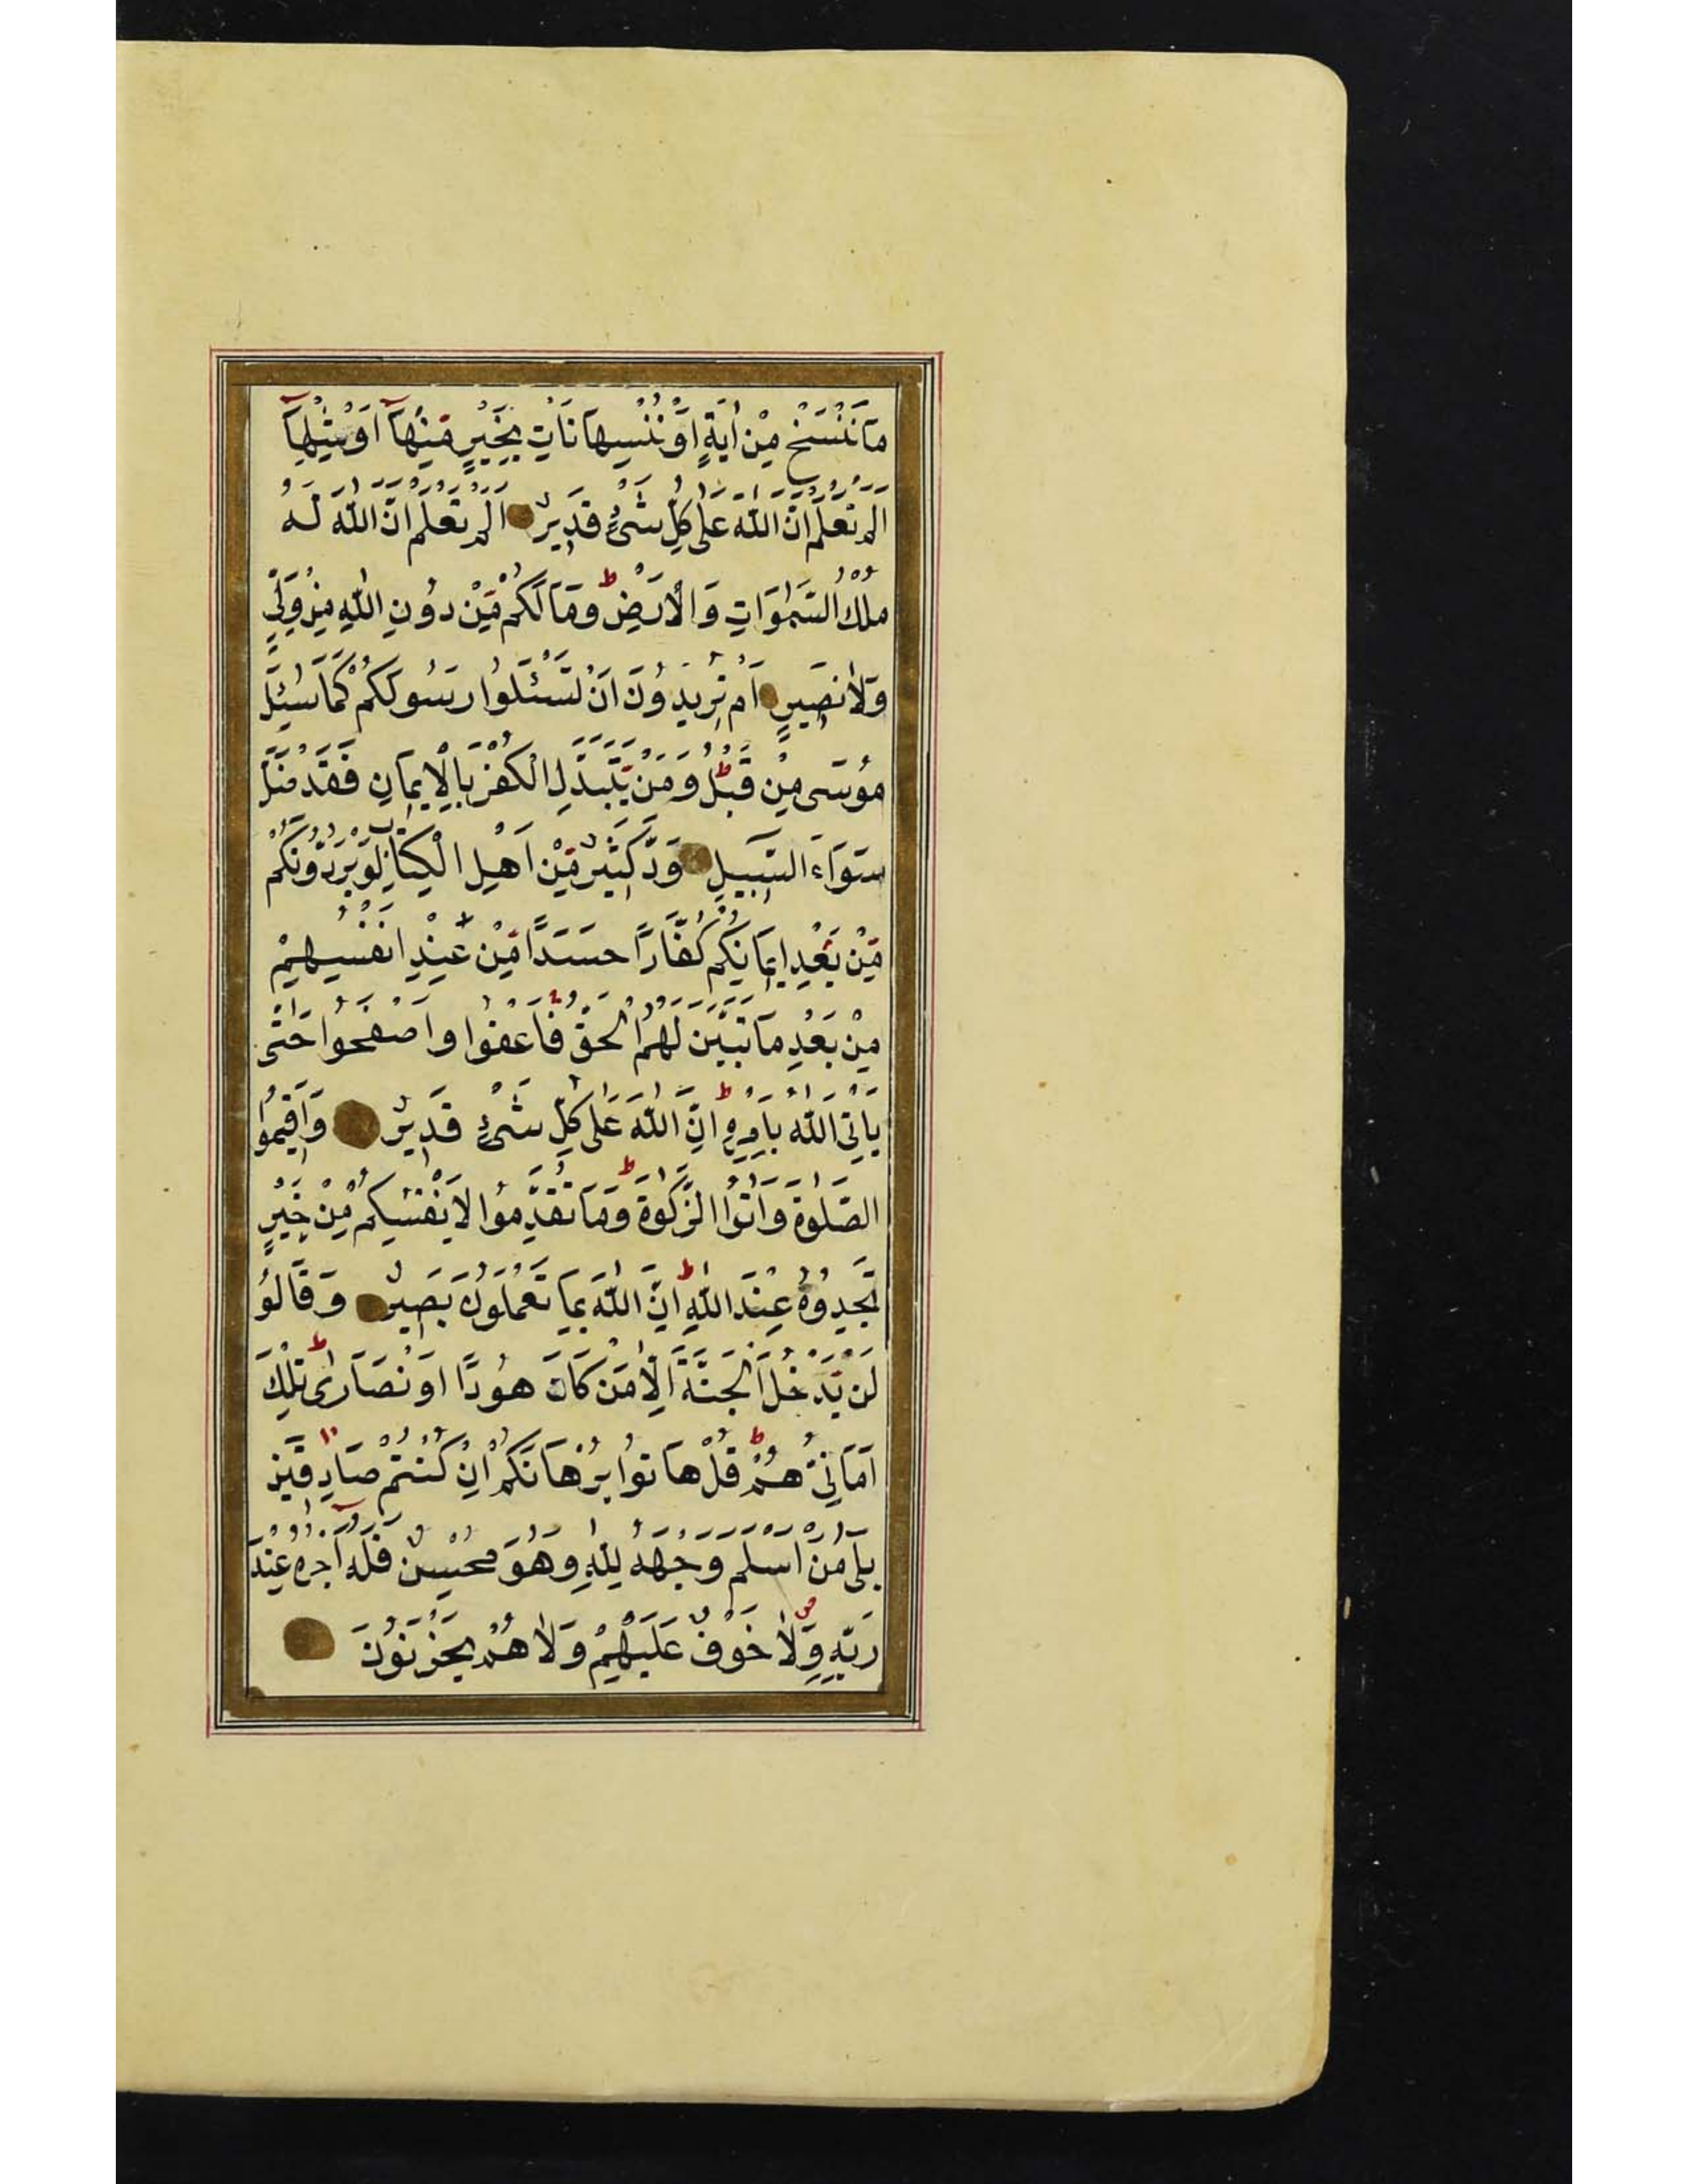 مَا نَنْسَخْ مِنْ اٰيَةٍ اَوْ نُنْسِهَا نَاْتِ بِخَيْرٍ مِنْهَآ اَوْ مِثْلِهَآ
اَلَمْ تَعْلَمْ اَنَّ اللّٰهَ عَلٰى كُلِّ شَىْءٍ قَدِيرٌ اَلَمْ تَعْلَمْ اَنَّ اللّٰهَ لَهُ
مُلْكُ السَّمٰوَاتِ وَالْاَرْضِ ط وَمَا لَكُمْ مِّنْ دُونِ اللّٰهِ مِنْ وَلِيٍّ
وَلَا نَصِيرٍ اَمْ تُرِيدُونَ اَنْ تَسْئَلُوا رَسُولَكُمْ كَمَا سُئِلَ
مُوسٰى مِنْ قَبْلُ ط وَمَنْ يَتَبَدَّلِ الْكُفْرَ بِالْاِيمَانِ فَقَدْ ضَلَّ
سَوَاءَ السَّبِيلِ وَدَّ كَثِيرٌ مِّنْ اَهْلِ الْكِتَابِ لَوْ يَرُدُّونَكُمْ
مِّنْ بَعْدِ اِيمَانِكُمْ كُفَّارًا حَسَدًا مِّنْ عِنْدِ اَنْفُسِهِمْ
مِنْ بَعْدِ مَا تَبَيَّنَ لَهُمُ الْحَقُّ فَاعْفُوا وَاصْفَحُوا حَتّٰى
يَاْتِىَ اللّٰهُ بِاَمْرِهِ ط اِنَّ اللّٰهَ عَلٰى كُلِّ شَىْءٍ قَدِيرٌ وَاَقِيمُوا
الصَّلٰوةَ وَاٰتُوا الزَّكٰوةَ ط وَمَا تُقَدِّمُوا لِاَنْفُسِكُمْ مِنْ خَيْرٍ
تَجِدُوهُ عِنْدَ اللّٰهِ ط اِنَّ اللّٰهَ بِمَا تَعْمَلُونَ بَصِيرٌ وَقَالُوُ
لَنْ يَدْخُلَ الْجَنَّةَ اِلَّا مَنْ كَانَ هُودًا اَوْ نَصَارٰى ط تِلْكَ
اَمَانِيُّهُمْ ط قُلْ هَاتُوا بُرْهَانَكُمْ اِنْ كُنْتُمْ صَادِقِينَ
بَلٰى مَنْ اَسْلَمَ وَجْهَهُ لِلّٰهِ وَهُوَ مُحْسِنٌ فَلَهُٓ اَجْرُهُ عِنْدَ
رَبِّهِ ص وَلَا خَوْفٌ عَلَيْهِمْ وَلَا هُمْ يَحْزَنُونَ